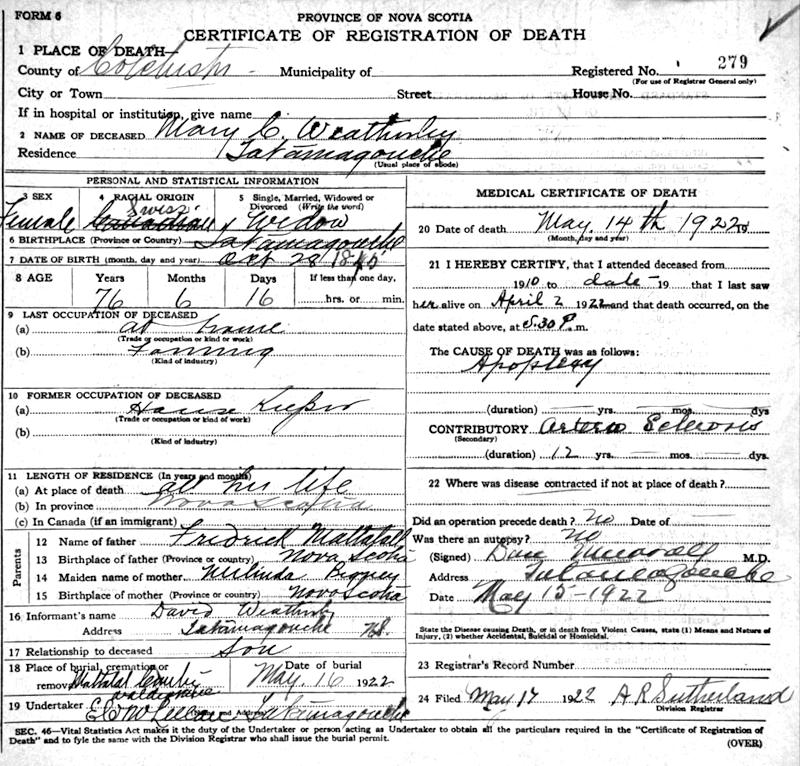 FORM 5
PROVINCE OF NOVA SCOTIA
CERTIFICATE OF REGISTRATION OF DEATH
1 PLACE OF DEATH—
County of Colchester Municipality of Registered No. 279
(For use of Registrar General only)
City or Town Street House No.
If in hospital or institution, give name
2 NAME OF DECEASED Mary C. Weatherby
Residence Tatamagouche
(Usual place of abode)
PERSONAL AND STATISTICAL INFORMATION
3 SEX 4 RACIAL ORIGIN 5 Single, Married, Widowed or Divorced (Write the word)
Female Swiss Widow
6 BIRTHPLACE (Province or Country) Tatamagouche
7 DATE OF BIRTH (month, day and year) Oct 28 1845
8 AGE Years Months Days If less than one day,
76 6 16 hrs. or min.
9 LAST OCCUPATION OF DECEASED
(a) at home
(Trade or occupation or kind of work)
(b) Farming
(Kind of industry)
10 FORMER OCCUPATION OF DECEASED
(a) House Keeper
(Trade or occupation or kind of work)
(b)
(Kind of industry)
11 LENGTH OF RESIDENCE (In years and months)
(a) At place of death all his life
(b) In province Nova Scotia
(c) In Canada (if an immigrant)
Parents
12 Name of father Fredrick Mattatall
13 Birthplace of father (Province or country) Nova Scotia
14 Maiden name of mother
15 Birthplace of mother (Province or country) Nova Scotia
16 Informant's name David Weatherby
Address Tatamagouche N.S.
17 Relationship to deceased Son
18 Place of burial, cremation or removal Mattatal Date of burial May 16 1922
19 Undertaker and Address Tatamagouche
MEDICAL CERTIFICATE OF DEATH
20 Date of death May 14th 1922
(Month, day and year)
21 I HEREBY CERTIFY, that I attended deceased from
1910 to date 19 that I last saw
her alive on April 2 1922 and that death occurred, on
the date stated above, at 5.30 P.m.
The CAUSE OF DEATH was as follows:
Apoplexy
(duration) yrs. mos. dys
CONTRIBUTORY Arterio Sclerosis
(Secondary)
(duration) 12 yrs. mos. dys.
22 Where was disease contracted if not at place of death?
Did an operation precede death? No Date of
Was there an autopsy? No
(Signed) Dan Murray M.D.
Address Tatamagouche
Date May 15-1922
State the Disease causing Death, or in death from Violent Causes, state (1) Means and Nature of
Injury, (2) whether Accidental, Suicidal or Homicidal.
23 Registrar's Record Number
24 Filed May 17 1922 A R Sutherland
Division Registrar
SEC. 46—Vital Statistics Act makes it the duty of the Undertaker or person acting as Undertaker to obtain all the particulars required in the "Certificate of Registration of
Death" and to fyle the same with the Division Registrar who shall issue the burial permit.
(OVER)